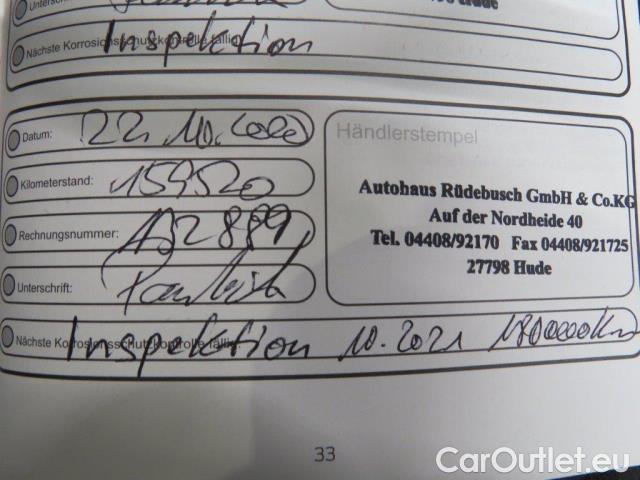 Unterschrift:
Hude
Nächste Korrosionsschutzkontrolle fällig:
Inspektion
Datum: 22. 10. 2020
Kilometerstand: 159520
Rechnungsnummer: 132889
Unterschrift:
Händlerstempel
Autohaus Rüdebusch GmbH & Co.KG
Auf der Nordheide 40
Tel. 04408/92170 Fax 04408/921725
27798 Hude
Nächste Korrosionsschutzkontrolle fällig:
Inspektion 10.2021 180000km
33
CarOutlet.eu